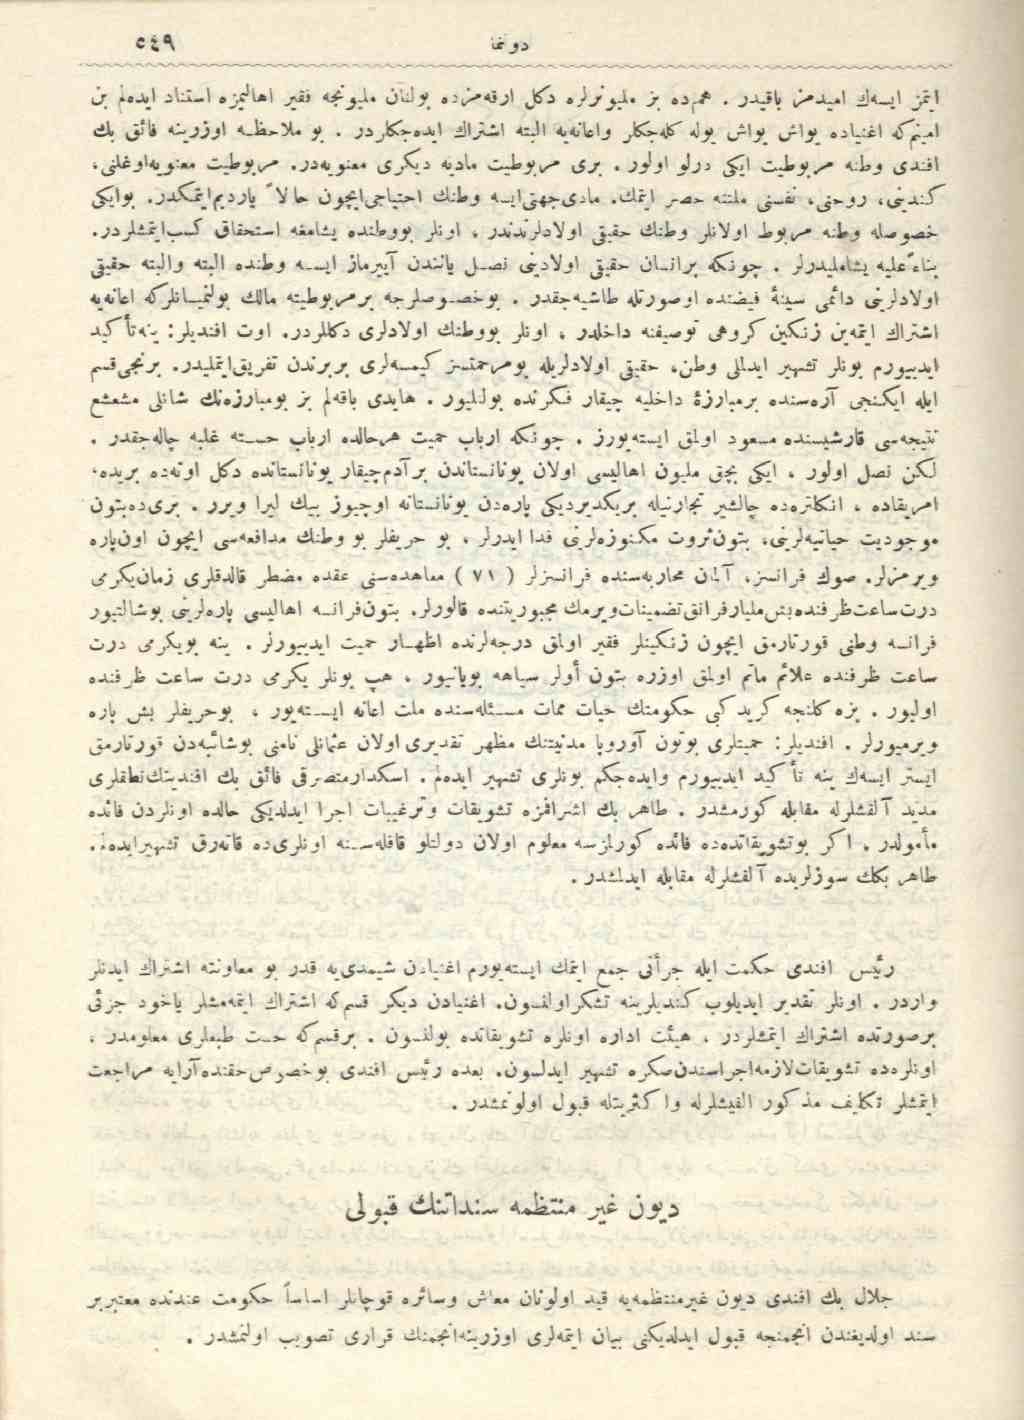 دوننما ٥٤٩
ایتمز ایسه‌ك امیدمز باقیدر . همده بز ملیونرلره دكل ارقه‌مزده بولنان ملیونجه فقیر اهالیمزه استناد ایده‌لم بن
امینم‌كه اغنیاده یواش یواش یوله كله‌جكلر واعانه‌یه البته اشتراك ایده‌جكلردر . بو ملاحظه اوزرینه فائق بك
افندی وطنه مربوطیت ایكی درلو اولور . بری مربوطیت مادیه دیكری معنویه‌در. مربوطیت معنویه‌اوغلنی،
كندینی، روحنی، نفسنی ملتنه حصر ایتمك. مادی‌جهتی‌ایسه وطنك احتیاجی‌ایچون حالاً یاردیم‌ایتمكدر. بوایكی
خصوصله وطنه مربوط اولانلر وطنك حقیقی اولادلرندندر ، اونلر بووطنده یشامغه استحقاق كسب‌ایتمشلردر.
بناءً علیه یشاملیدرلر . چونكه برانسان حقیقی اولادینی نصل یانندن آییرماز ایسه وطنده البته والبته حقیقی
اولادلرینی دائمی سینهٔ فیضنده اوصورتله طاشیه‌جقدر . بوخصوصلرجه برمربوطیته مالك بولنمیانلركه اعانه‌یه
اشتراك ایتمه‌ین زنكین كروهی توصیفنه داخلدر ، اونلر بووطنك اولادلری دكللردر. اوت افندیلر: ینه‌تأكید
ایدییورم بونلر تشهیر ایدلملی وطن، حقیقی اولادلریله بومرحمتسز كیمسه‌لری بربرندن تفریق‌ایتملیدر. برنجی‌قسم
ایله ایكنجی آره‌سنده برمبارزهٔ داخلیه چیقار فكرنده بولنلیور . هایدی باقه‌لم بز بومبارزه‌نك شانلی مشعشع
نتیجه‌سی قارشیسنده مسعود اولمق ایسته‌یورز . چونكه ارباب حمیت هرحالده ارباب حسته غلبه چاله‌جقدر .
لكن نصل اولور ، ایكی بچق ملیون اهالیسی اولان یونانستاندن برآدم‌چیقار یونانستانده دكل اوته‌ده بریده،
امریقاده ، انكلتره‌ده چالشیر تجارتیله بریكدیردیكی پاره‌دن یونانستانه اوچیوز بیك لیرا ویرر . بری‌ده‌بتون
موجودیت حیاتیه‌لرینی، بتون‌ثروت مكنوزه‌لرینی فدا ایدرلر ، بو حریفلر بو وطنك مدافعه‌سی ایچون اون‌پاره
ویرمزلر. صوك فرانسز، آلمان محاربه‌سنده فرانسزلر ( ٧١ ) معاهده‌سنی عقده مضطر قالدقلری زمان‌یكرمی
درت‌ساعت‌ظرفنده‌بش‌ملیارفرانق‌تضمینات‌ویرمك مجبوریتنده قالورلر. بتون‌فرانسه اهالیسی پاره‌لرینی بوشالتیور
فرانسه وطنی قورتارمق ایچون زنكینلر فقیر اولمق درجه‌لرنده اظهار حمیت ایدییورلر . ینه بویكرمی درت
ساعت ظرفنده علائم ماتم اولمق اوزره بتون أولر سیاهه بویانیور ، هپ بونلر یكرمی درت ساعت ظرفنده
اولیور . بزه كلنجه كرید كبی حكومتك حیات ممات مسئله‌سنده ملت اعانه ایسته‌یور ، بوحریفلر بش پاره
ویرمیورلر . افندیلر: حمیتلری بوتون آوروپا مدنیتنك مظهر تقدیری اولان عثمانلی نامنی بوشائبه‌دن قورتارمق
ایستر ایسه‌ك ینه تأكید ایدییورم وایده‌جكم بونلری تشهیر ایده‌لم . اسكدارمتصرفی فائق بك افندینك‌نطقلری
مدید آلقشلرله مقابله كورمشدر . طاهر بك اشرافمزه تشویقات وترغیبات اجرا ایدلدیكی حالده اونلردن فائده
مأمولدر . اكر بوتشویقاتده‌ده فائده كورلمزسه معلوم اولان دولتلو قافله‌سنه اونلری‌ده قاته‌رق تشهیرایده‌لم.
طاهر بكك سوزلریده آلقشلرله مقابله ایدلمشدر .
رئیس افندی حكمت ایله جرأتی جمع ایتمك ایسته‌یورم اغنیادن شیمدی‌یه قدر بو معاونته اشتراك ایدنلر
واردر . اونلر تقدیر ایدیلوب كندیلرینه تشكراولنسون. اغنیادن دیكر قسم‌كه اشتراك ایتمه‌مشلر یاخود جزئی
برصورتده اشتراك ایتمشلردر ، هیئت اداره اونلره تشویقاتده بولنسون . برقسم‌كه خست طبعلری معلومدر ،
اونلره‌ده تشویقات‌لازمه‌اجراسندن‌صكره تشهیر ایدلسون. بعده رئیس افندی بوخصوص‌حقنده‌آرایه مراجعت
ایتمشلر تكلیف مذكور القیشلرله واكثریتله قبول اولونمشدر .
دیون غیر منتظمه سنداتنك قبولی
جلال بك افندی دیون غیرمنتظمه‌یه قید اولونان معاش وسائره قوچانلر اساساً حكومت عندنده معتبربر
سند اولدیغندن انجمنجه قبول ایدلدیكنی بیان ایتمه‌لری اوزرینه‌انجمنك قراری تصویب اولنمشدر .